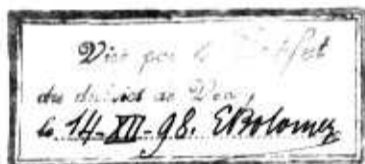 Visé par le Préfet
du district de Vevey
le 14-XII-98. EBolomey